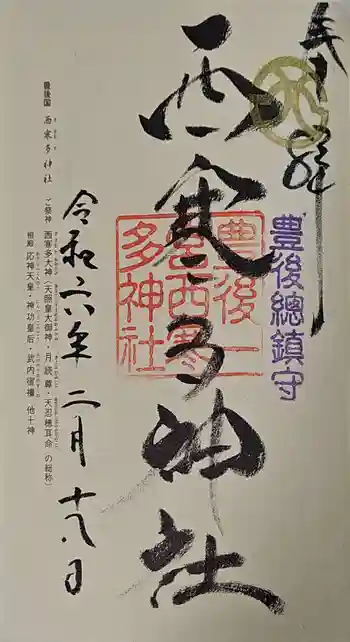 奉拝
豊後總鎮守
西寒多神社
豊後一
宮西寒
多神社
令和六年二月十八日
豊後国 西寒多神社 ご祭神 西寒多大神(天照皇大御神・月読尊・天忍穂耳命 の総称)
相殿 応神天皇・神功皇后・武内宿禰 他十神